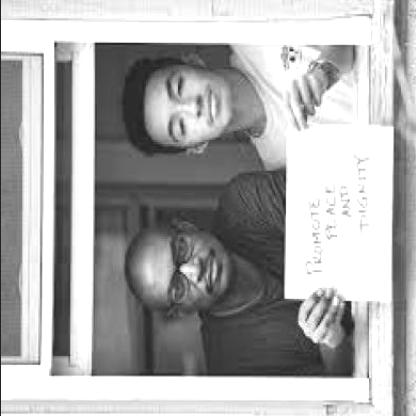 PROMOTE
PEACE
AND
DIGNITY